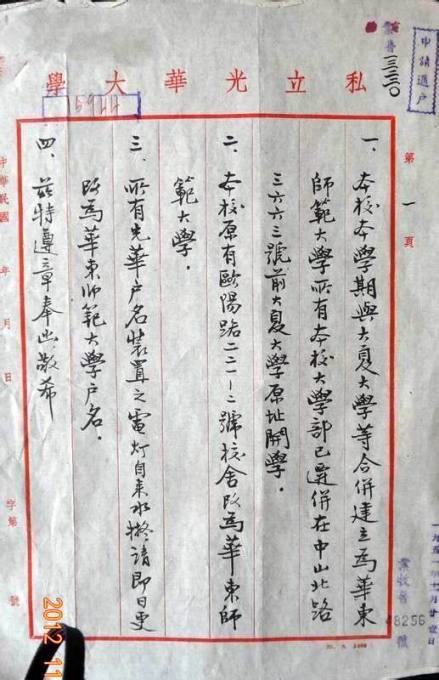 申請過戶
私立光華大學
第一頁
一、本校本學期與大夏大學等合併建立為華東
師範大學所有本校大學部已遷併在中山北路
三六六三號前大夏大學原址開學．
二、本校原有歐陽路二二一-二號校舍改為華東師
範大學．
三、所有光華戶名裝置之電灯自來水擬請即日更
改為華東師範大學戶名．
四、茲特遵章奉函敬希
中華民國 年 月 日 字第 號
業收普 48256 號
2012 11